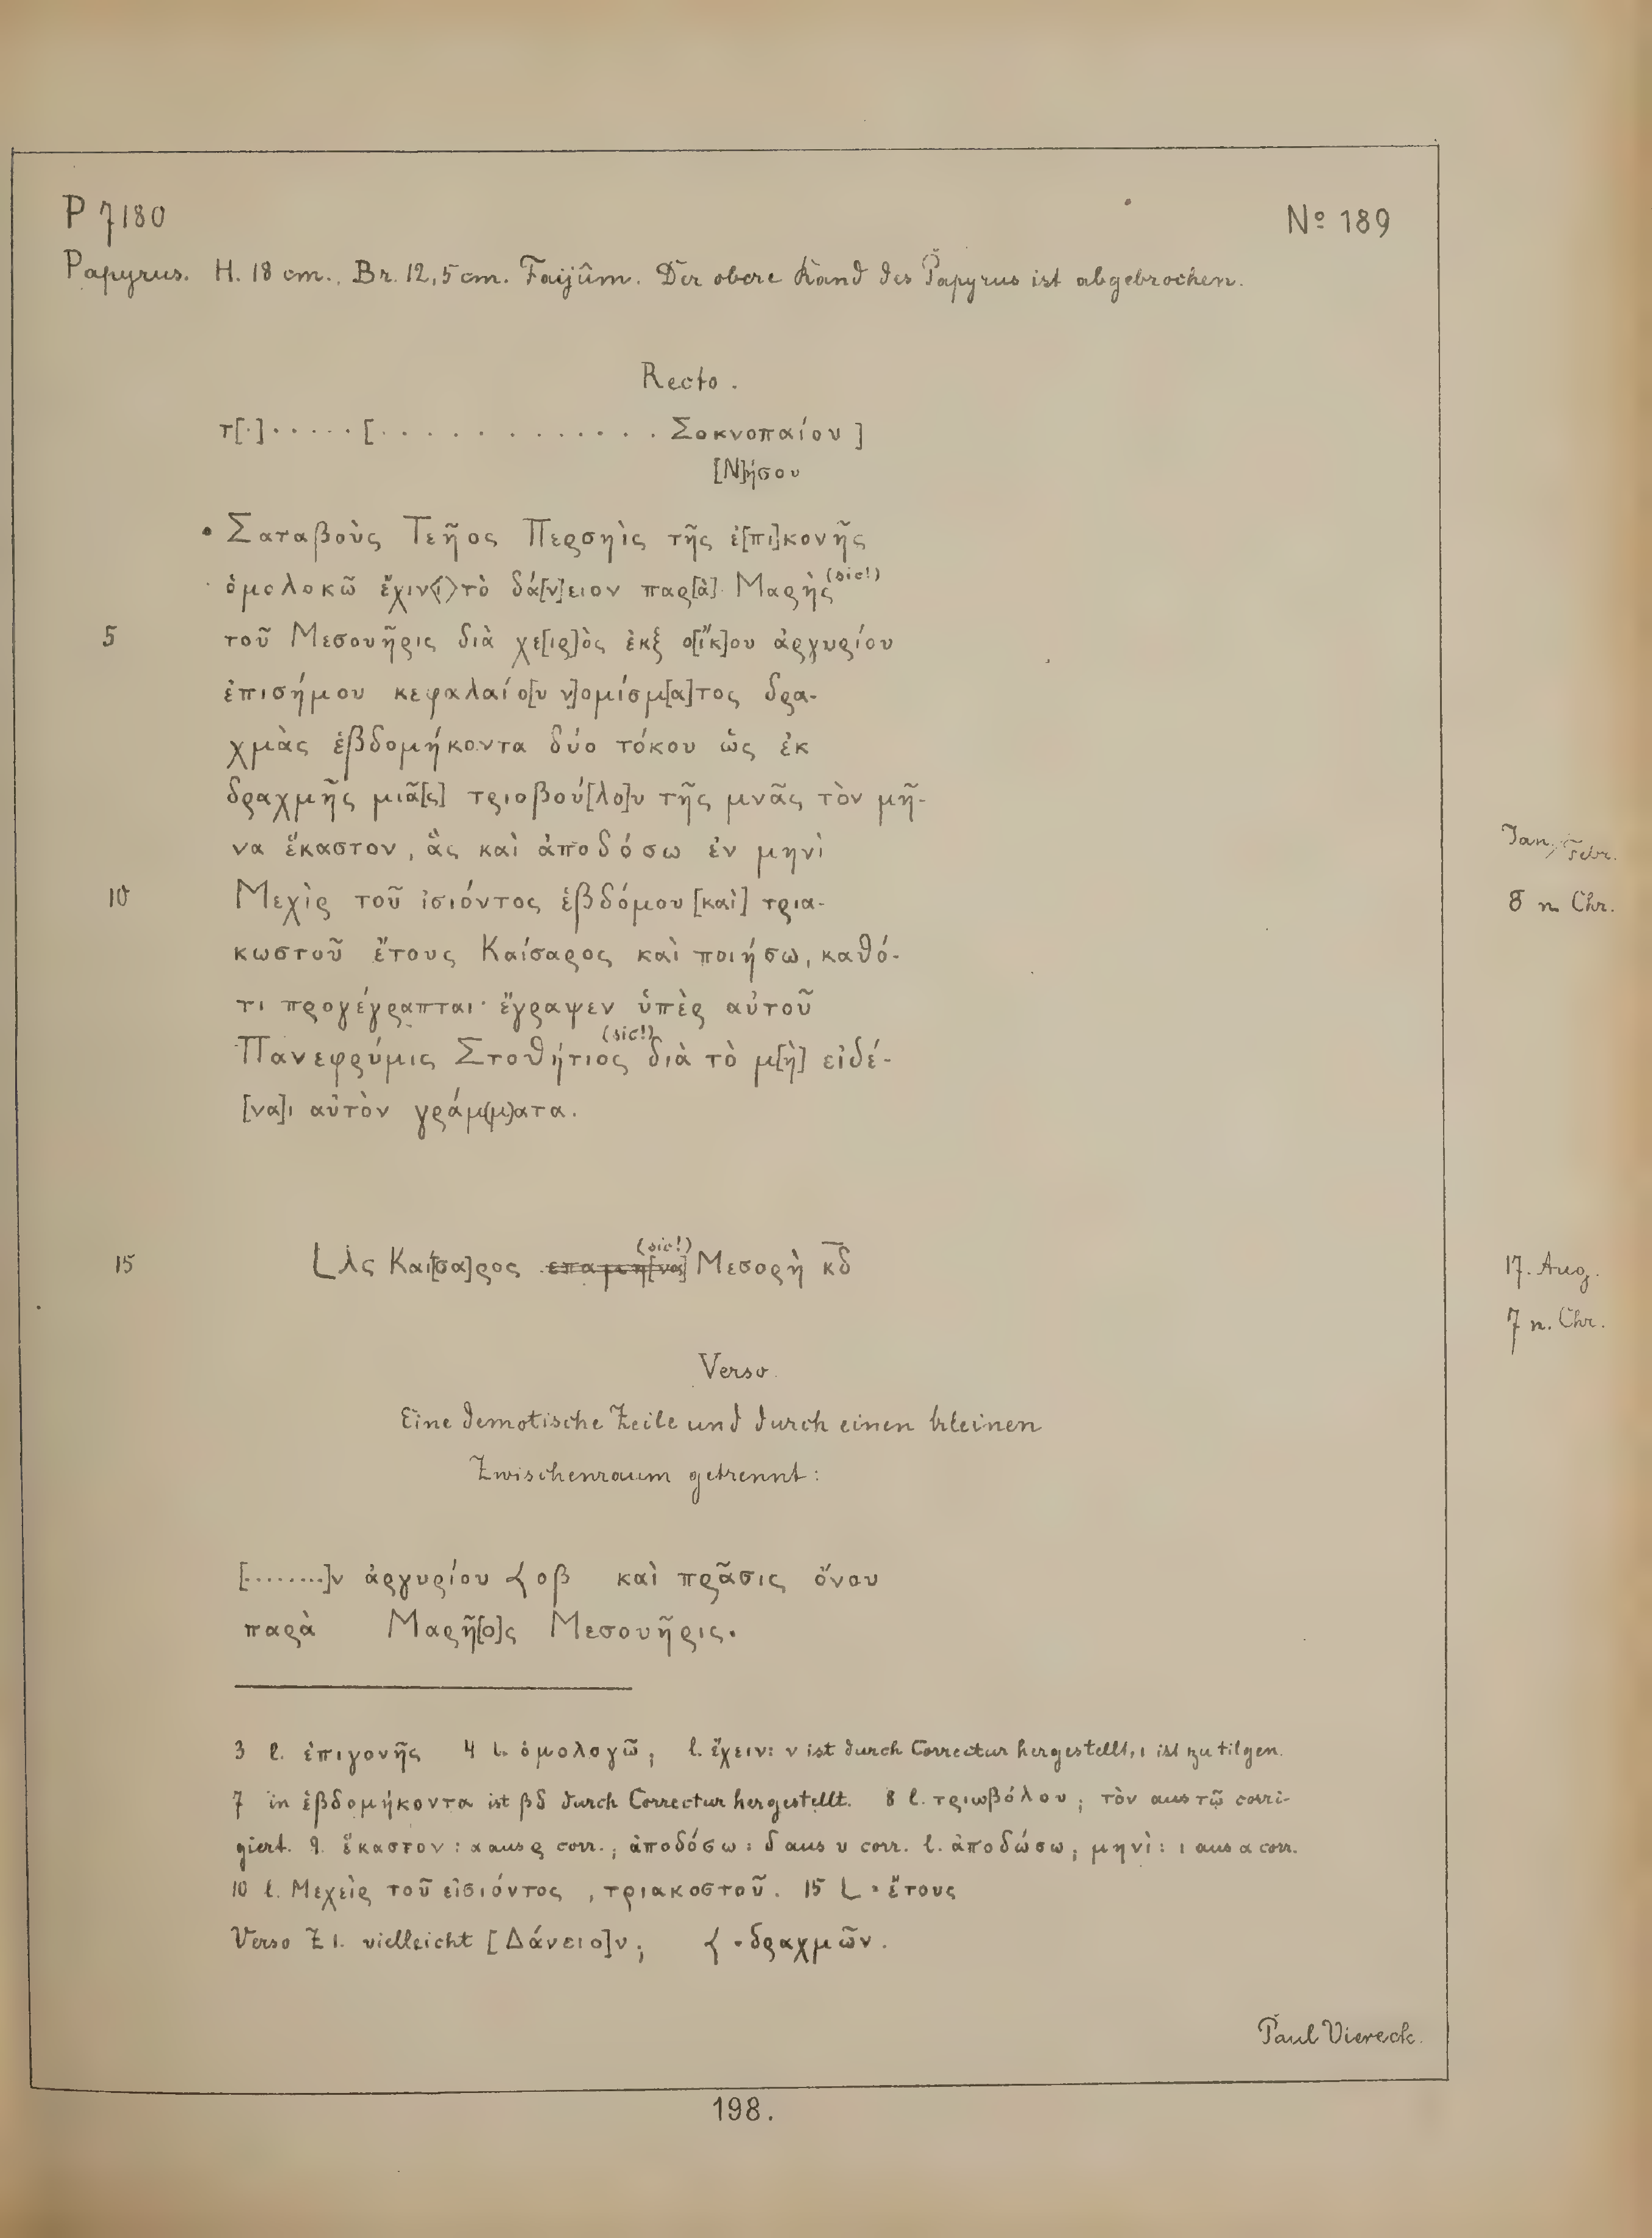 P 7180 Nº 189
Papyrus. H. 18 cm., Br. 12,5 cm. Faijûm. Der obere Rand des Papyrus ist abgebrochen.
Recto.
τ[·]·····[. . . . . . . . . . . . . Σοκνοπαίου]
[Ν]ήσου
Σαταβοὺς Τεῆος Περσηὶς τῆς ἐ[πι]κονῆς
ὁμολοκῶ ἔχιν⟨ι⟩ τὸ δά[ν]ειον παρ[ὰ] Μαρὴς (sic!)
5 τοῦ Μεσουῆρις διὰ χε[ιρ]ὸς ἐκξ ο[ἴκ]ου ἀργυρίου
ἐπισήμου κεφαλαίο[υ ν]ομίσμ[α]τος δρα-
χμὰς ἑβδομήκοντα δύο τόκου ὡς ἐκ
δραχμῆς μιᾶ[ς] τριοβού[λο]υ τῆς μνᾶς τὸν μῆ-
να ἕκαστον, ἃς καὶ ἀποδόσω ἐν μηνὶ Jan./Febr.
10 Μεχὶρ τοῦ ἰσιόντος ἑβδόμου [καὶ] τρια- 8 n Chr.
κωστοῦ ἔτους Καίσαρος καὶ ποιήσω, καθό-
τι προγέγραπται· ἔγραψεν ὑπὲρ αὐτοῦ
Πανεφρύμις Στοθήτιος (sic!) διὰ τὸ μ[ὴ] εἰδέ-
[να]ι αὐτὸν γράμ(μ)ατα.
15 L λς Καί[σα]ρος επαμη[να] (sic!) Μεσορὴ κδ 17. Aug.
7 n. Chr.
Verso.
Eine demotische Zeile und durch einen kleinen
Zwischenraum getrennt:
[........]ν ἀργυρίου ⟨ οβ καὶ πρᾶσις ὄνου
παρὰ Μαρῆ[ο]ς Μεσουῆρις.
3 l. ἐπιγονῆς 4 l. ὁμολογῶ; l. ἔχειν: ν ist durch Correctur hergestellt, ι ist zu tilgen.
7 in ἑβδομήκοντα ist βδ durch Correctur hergestellt. 8 l. τριωβόλου; τὸν aus τῷ corri-
giert. 9. ἕκαστον: α aus ρ corr.; ἀποδόσω: δ aus υ corr. l. ἀποδώσω; μηνὶ: ι aus α corr.
10 l. Μεχεὶρ τοῦ εἰσιόντος, τριακοστοῦ. 15 L = ἔτους
Verso Z 1. vielleicht [Δάνειο]ν; ⟨ = δραχμῶν.
Paul Viereck.
198.